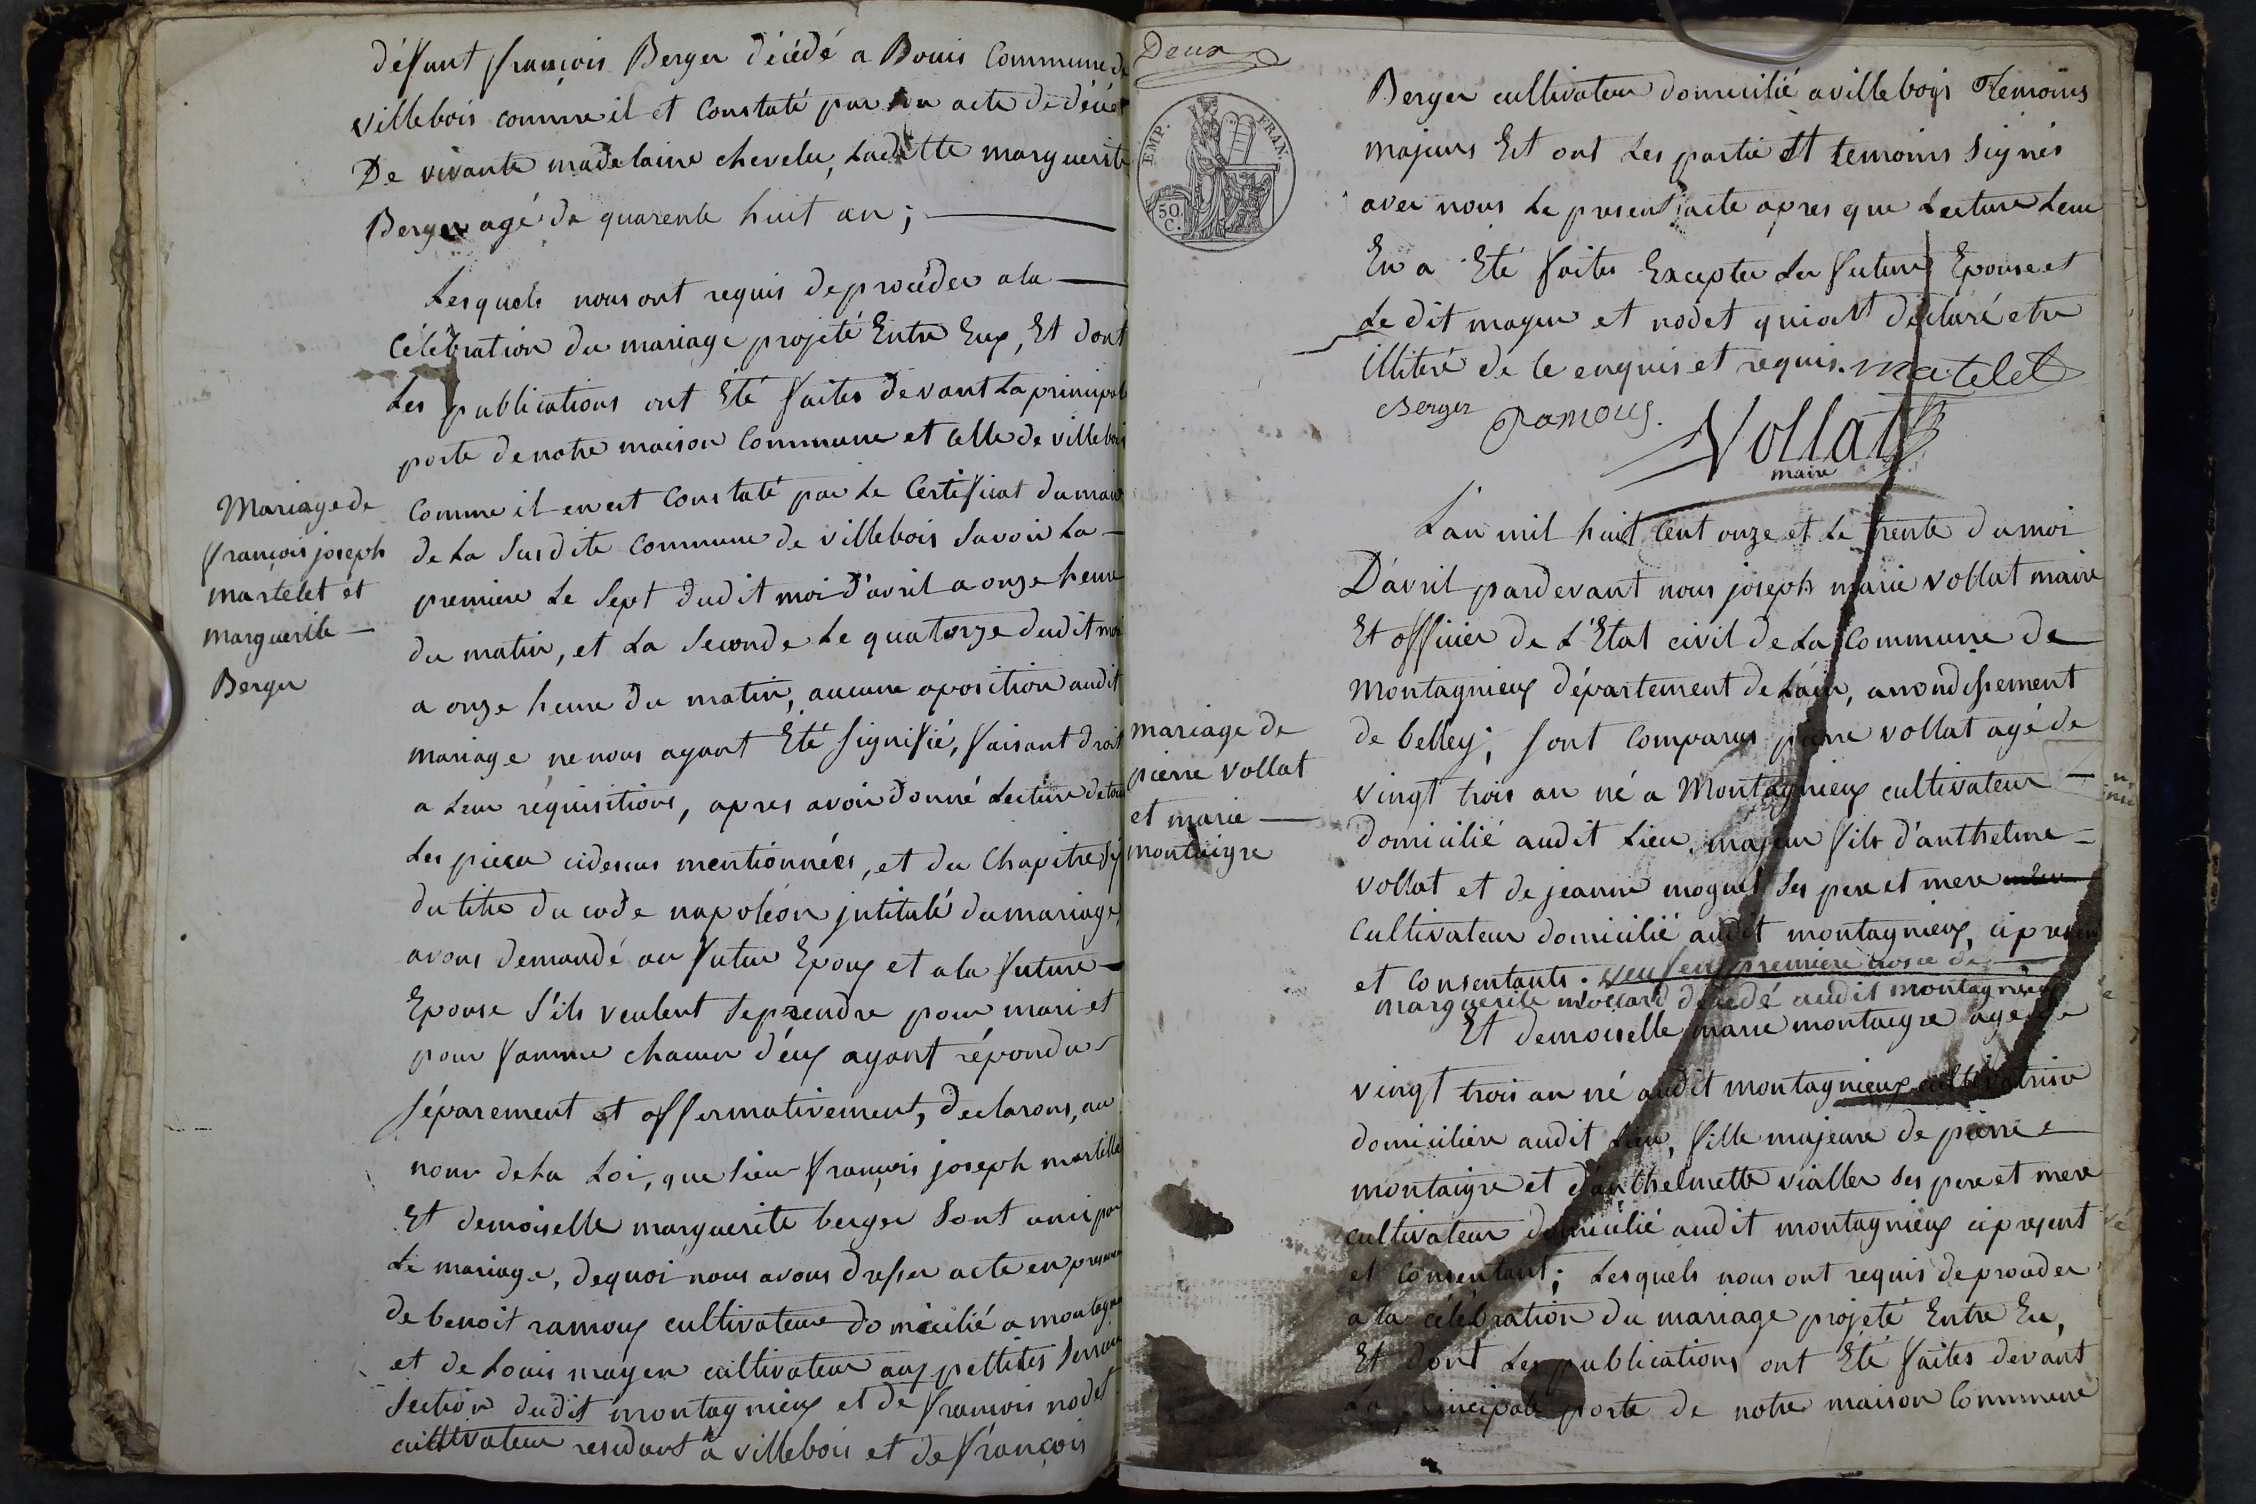 défunt françois Berger décédé a Bouis Commune de
villebois comme il et Constaté par son acte de décet
De vivante madelaine chevelu, Laditte marguerite
Berger agé de quarente huit an ;
Lesquels nous ont requis de procéder a la
célébration du mariage projeté Entre Eux, Et dont
Les publications ont Eté faites devant La principale
porte de notre maison Commune et celle de villebois
Comme il en est Constaté par Le Certificat du maire
de La Susdite Commune de villebois Savoir La
premiere Le Sept dudit moi d'avril a onze heure
du matin, et La Seconde Le quatorze dudit moi
a onze heure du matin, aucune oposition audit
mariage ne nous ayant Eté Signifié, faisant droit
a Leur réquisitions, apres avoir donné Lecture de tout
Les pieces cidessus mentionnées, et du Chapitre
du titre du code napoléon jntitulé du mariage,
avons demandé au futur Epoux et a la future
Epouse S'ils veulent Se prendre pour mari et
pour famme chacun d'eux ayant répondu
Séparement et affermativement, declarons, au
nom de La Loi, que Sieur françois joseph martelet
Et demoiselle marguerite berger Sont uni par
Le mariage, dequoi nous avons dresser acte en presence
de benoit ramoux cultivateur domicilié a montagnieux
et de Louis mayen cultivateur aux pettites
Section dudit montagnieux et de francois nodet
cultivateur residant à villebois et de françois
Mariage de
françois joseph
martelet et
marguerite
Berger
Deux
EMP. FRAN.
50
C.
Berger cultivateur domicilié a villebois temoins
majeurs Et ont Les partie Et temoins Signés
avec nous Le present acte apres que Lecture Leur
En a Eté faites Excepter La future Epouse et
Le dit mayen et nodet qui ont déclaré etre
illiteré de ce enquis et requis. matelet
Berger Ramoux.
Vollat
maire
L'an mil huit Cent onze et Le trente du moi
D'avril pardevant nous joseph marie vollat maire
Et officier de L'Etat civil de La Commune de
Montagnieux département de L'ain, arrondissement
de belley; Sont Comparus pierre vollat agé de
vingt trois an né a Montagnieux cultivateur
domicilié audit Lieu, majeur fils d'anthelme
vollat et de jeanne moguet Ses pere et mere
Cultivateur domicilié audit montagnieux, ci present
et Consentants. veuf en premiere nosce de
marguerite mollard décédé audit montagnieux
Et demoiselle marie montaigre agée de
vingt trois an né audit montagnieux cultivatrise
domiciliée audit Lieu, fille majeure de pierre
montaigre et d'anthelmette viallet Ses pere et mere
cultivateur domicilié audit montagnieux ci present
et Consentant; Lesquels nous ont requis de proceder
a la célébration du mariage projeté Entre Eu,
Et dont Les publications ont Eté faites devant
La principale porte de notre maison Commune
mariage de
pierre vollat
et marie
montaigre